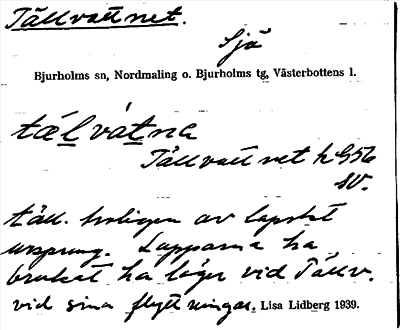 Tällvattnet.
Sjö
Bjurholms sn, Nordmaling o. Bjurholms tg, Västerbottens l.
tæl̲vát̲na
Tällvattnet h 956
SV.
täll. troligen av lapskt
ursprung. Lapparna ha
brukat ha läger vid Tällv.
vid sina flyttningar. Lisa Lidberg 1939.